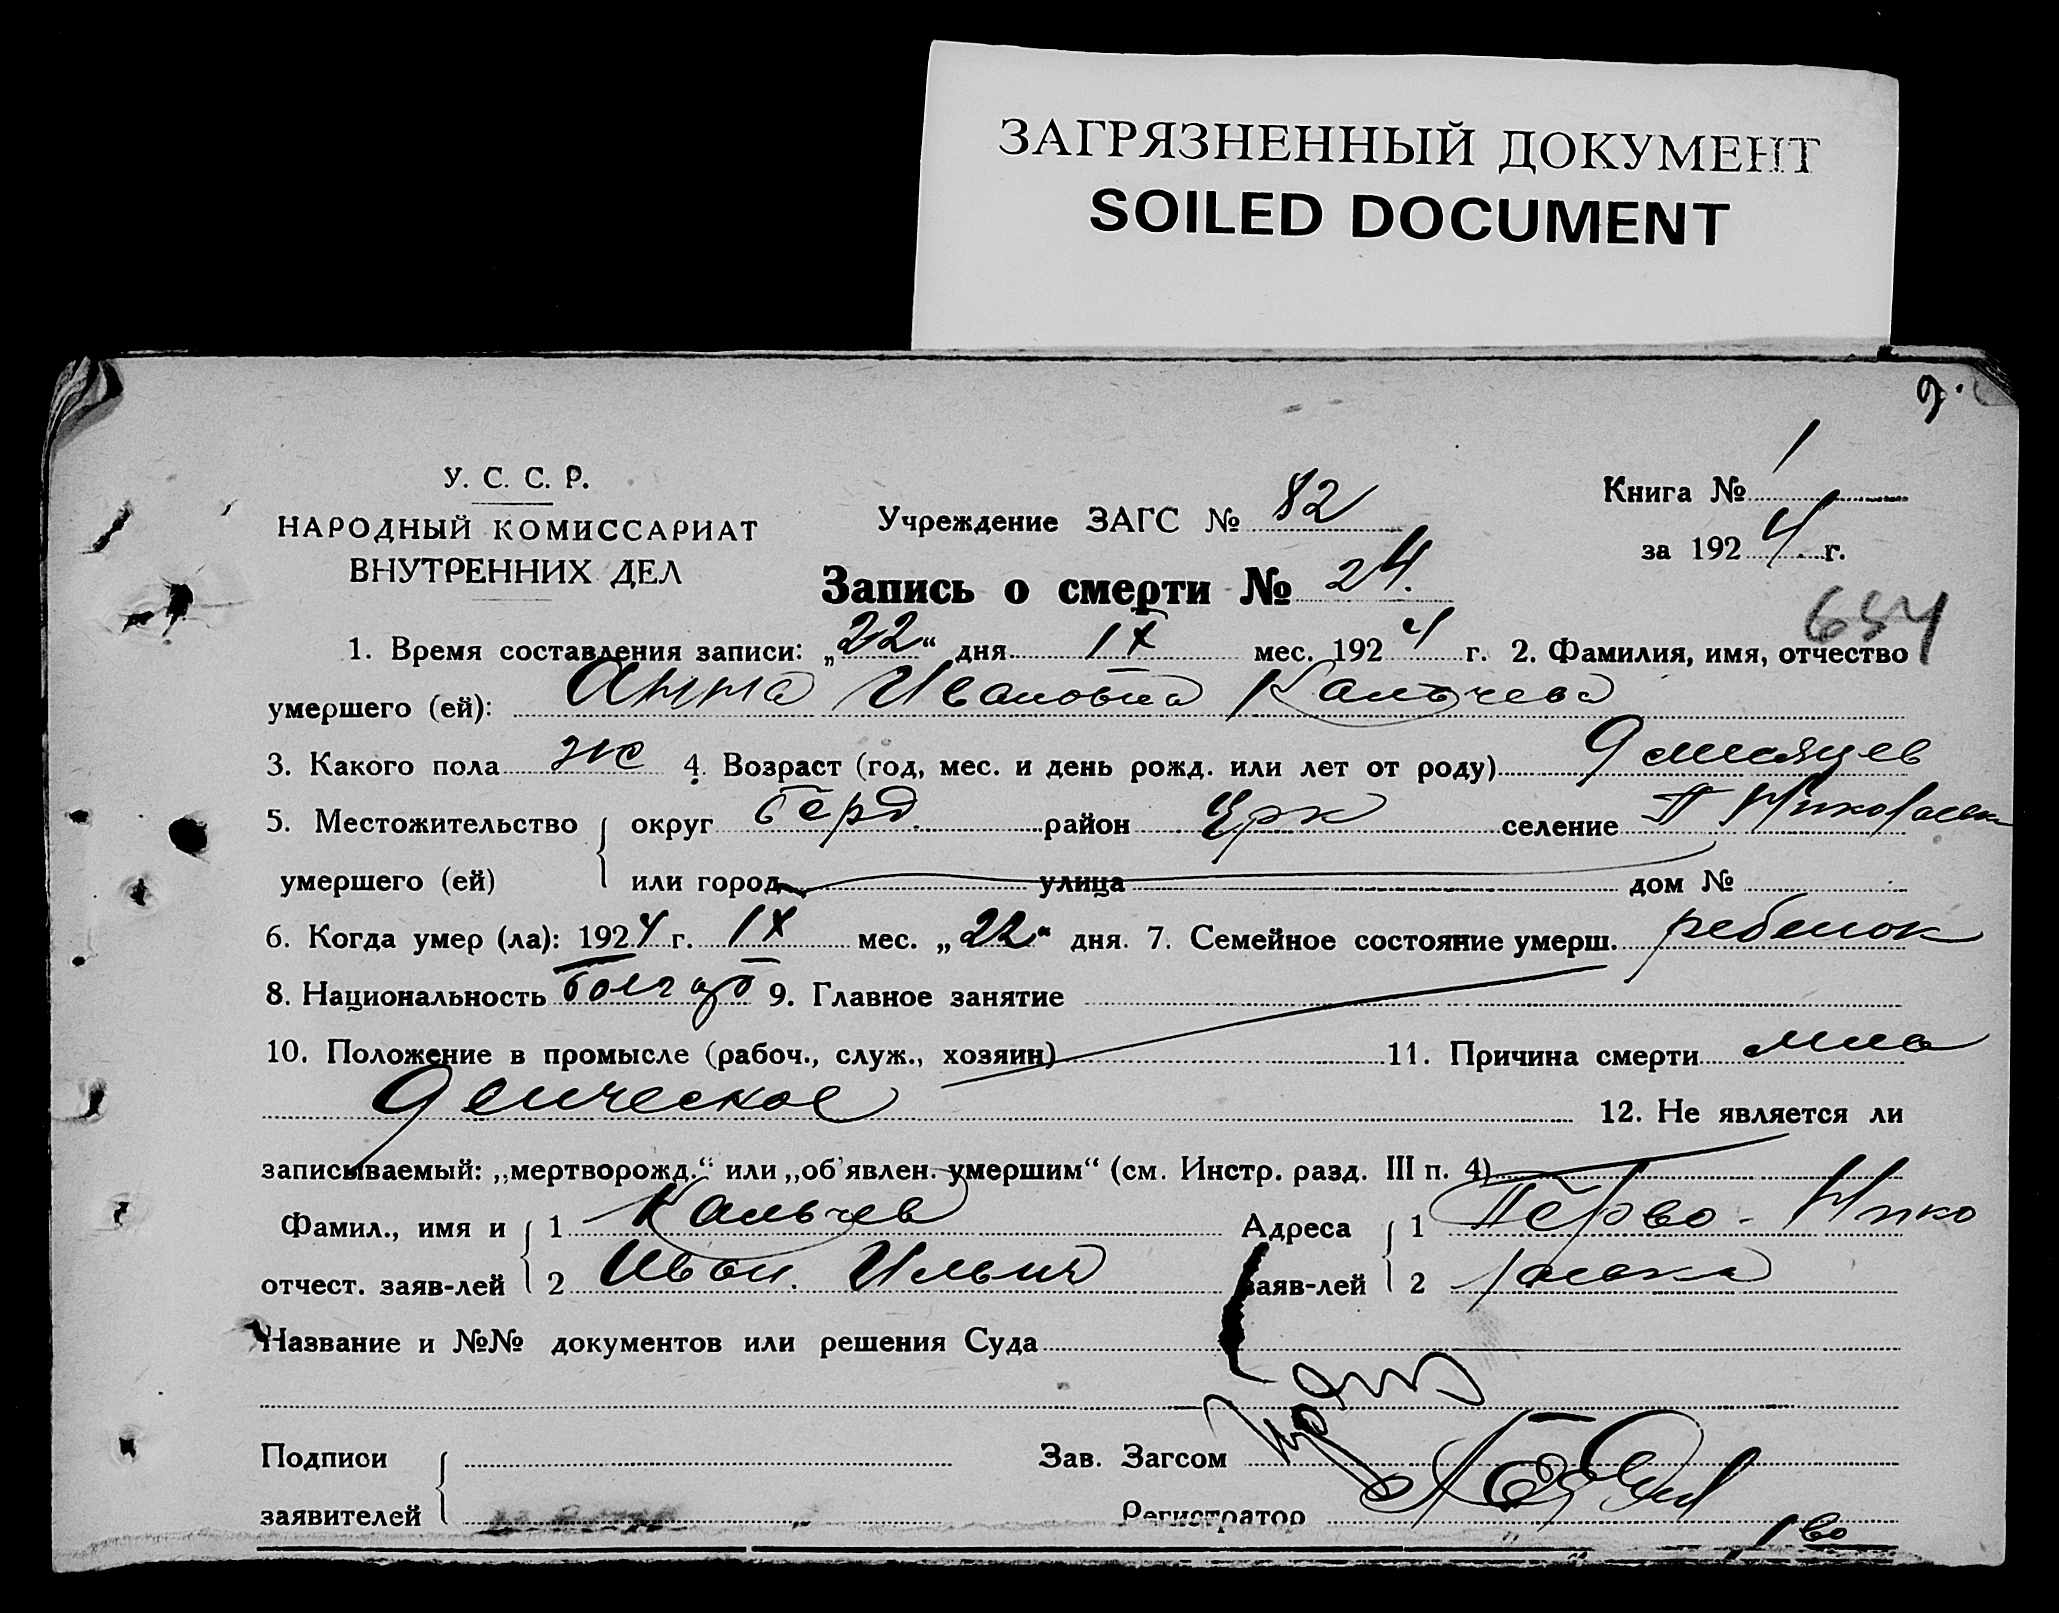 ЗАГРЯЗНЕННЫЙ ДОКУМЕНТ
SOILED DOCUMENT
9.
У. С. С. Р.
НАРОДНЫЙ КОМИССАРИАТ
ВНУТРЕННИХ ДЕЛ
Учреждение ЗАГС № 82
Книга № 1
за 1924 г.
Запись о смерти № 24.
634
1. Время составления записи: „22“ дня IX мес. 1924 г. 2. Фамилия, имя, отчество
умершего (ей): Анна Ивановна Кальчева
3. Какого пола ж 4. Возраст (год, мес. и день рожд. или лет от роду) 9 месяцев
5. Местожительство округ Берд район Црк селение П Николаевк
умершего (ей) или город улица дом №
6. Когда умер (ла): 1924 г. IX мес. „22“ дня. 7. Семейное состояние умерш. ребенок
8. Национальность болгар 9. Главное занятие
10. Положение в промысле (рабоч., служ., хозяин) 11. Причина смерти мла
деническое 12. Не является ли
записываемый: „мертворожд.“ или „об'явлен. умершим“ (см. Инстр. разд. III п. 4)
Фамил., имя и 1 Кальчев Адреса 1 Перво-Нико
отчест. заяв-лей 2 Иван Ильич заяв-лей 2 лаевка
Название и №№ документов или решения Суда
Подписи Зав. Загсом
заявителей Регистратор